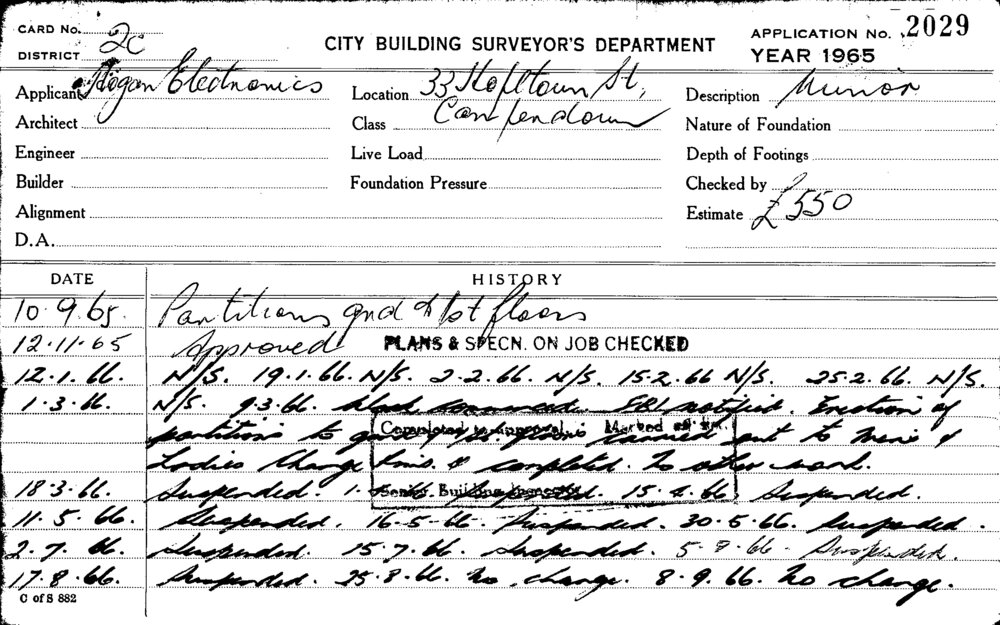 CARD No.
2c
DISTRICT
CITY BUILDING SURVEYOR'S DEPARTMENT
APPLICATION No. 2029
YEAR 1965
Applicant Hogan Electronics
Location 33
St,
Description Minor
Architect
Class Camperdown
Nature of Foundation
Engineer
Live Load
Depth of Footings
Builder
Foundation Pressure
Checked by
Alignment
Estimate £550
D.A.
DATE
HISTORY
10.9.65. Partitions gnd & 1st floors
12.11.65 Approved PLANS & SPECN. ON JOB CHECKED
12.1.66. N/S. 19.1.66. N/S. 2.2.66. N/S. 15.2.66 N/S. 25.2.66. N/S.
1.3.66. N/S. 9.3.66. notified. Erection of
partitions to carried out to Mens &
Completed to approval. Marked off
Ladies Change & completed. No other work.
Senior Building Inspector
18.3.66. Suspended. 15.4.66. Suspended.
11.5.66. Suspended. 16-5-66. Suspended. 30.5.66. Suspended.
2.7.66. Suspended. 15.7.66. Suspended. 5.8.66. Suspended.
17.8.66. Suspended. 25.8.66. No change. 8.9.66. No change.
C of S 882